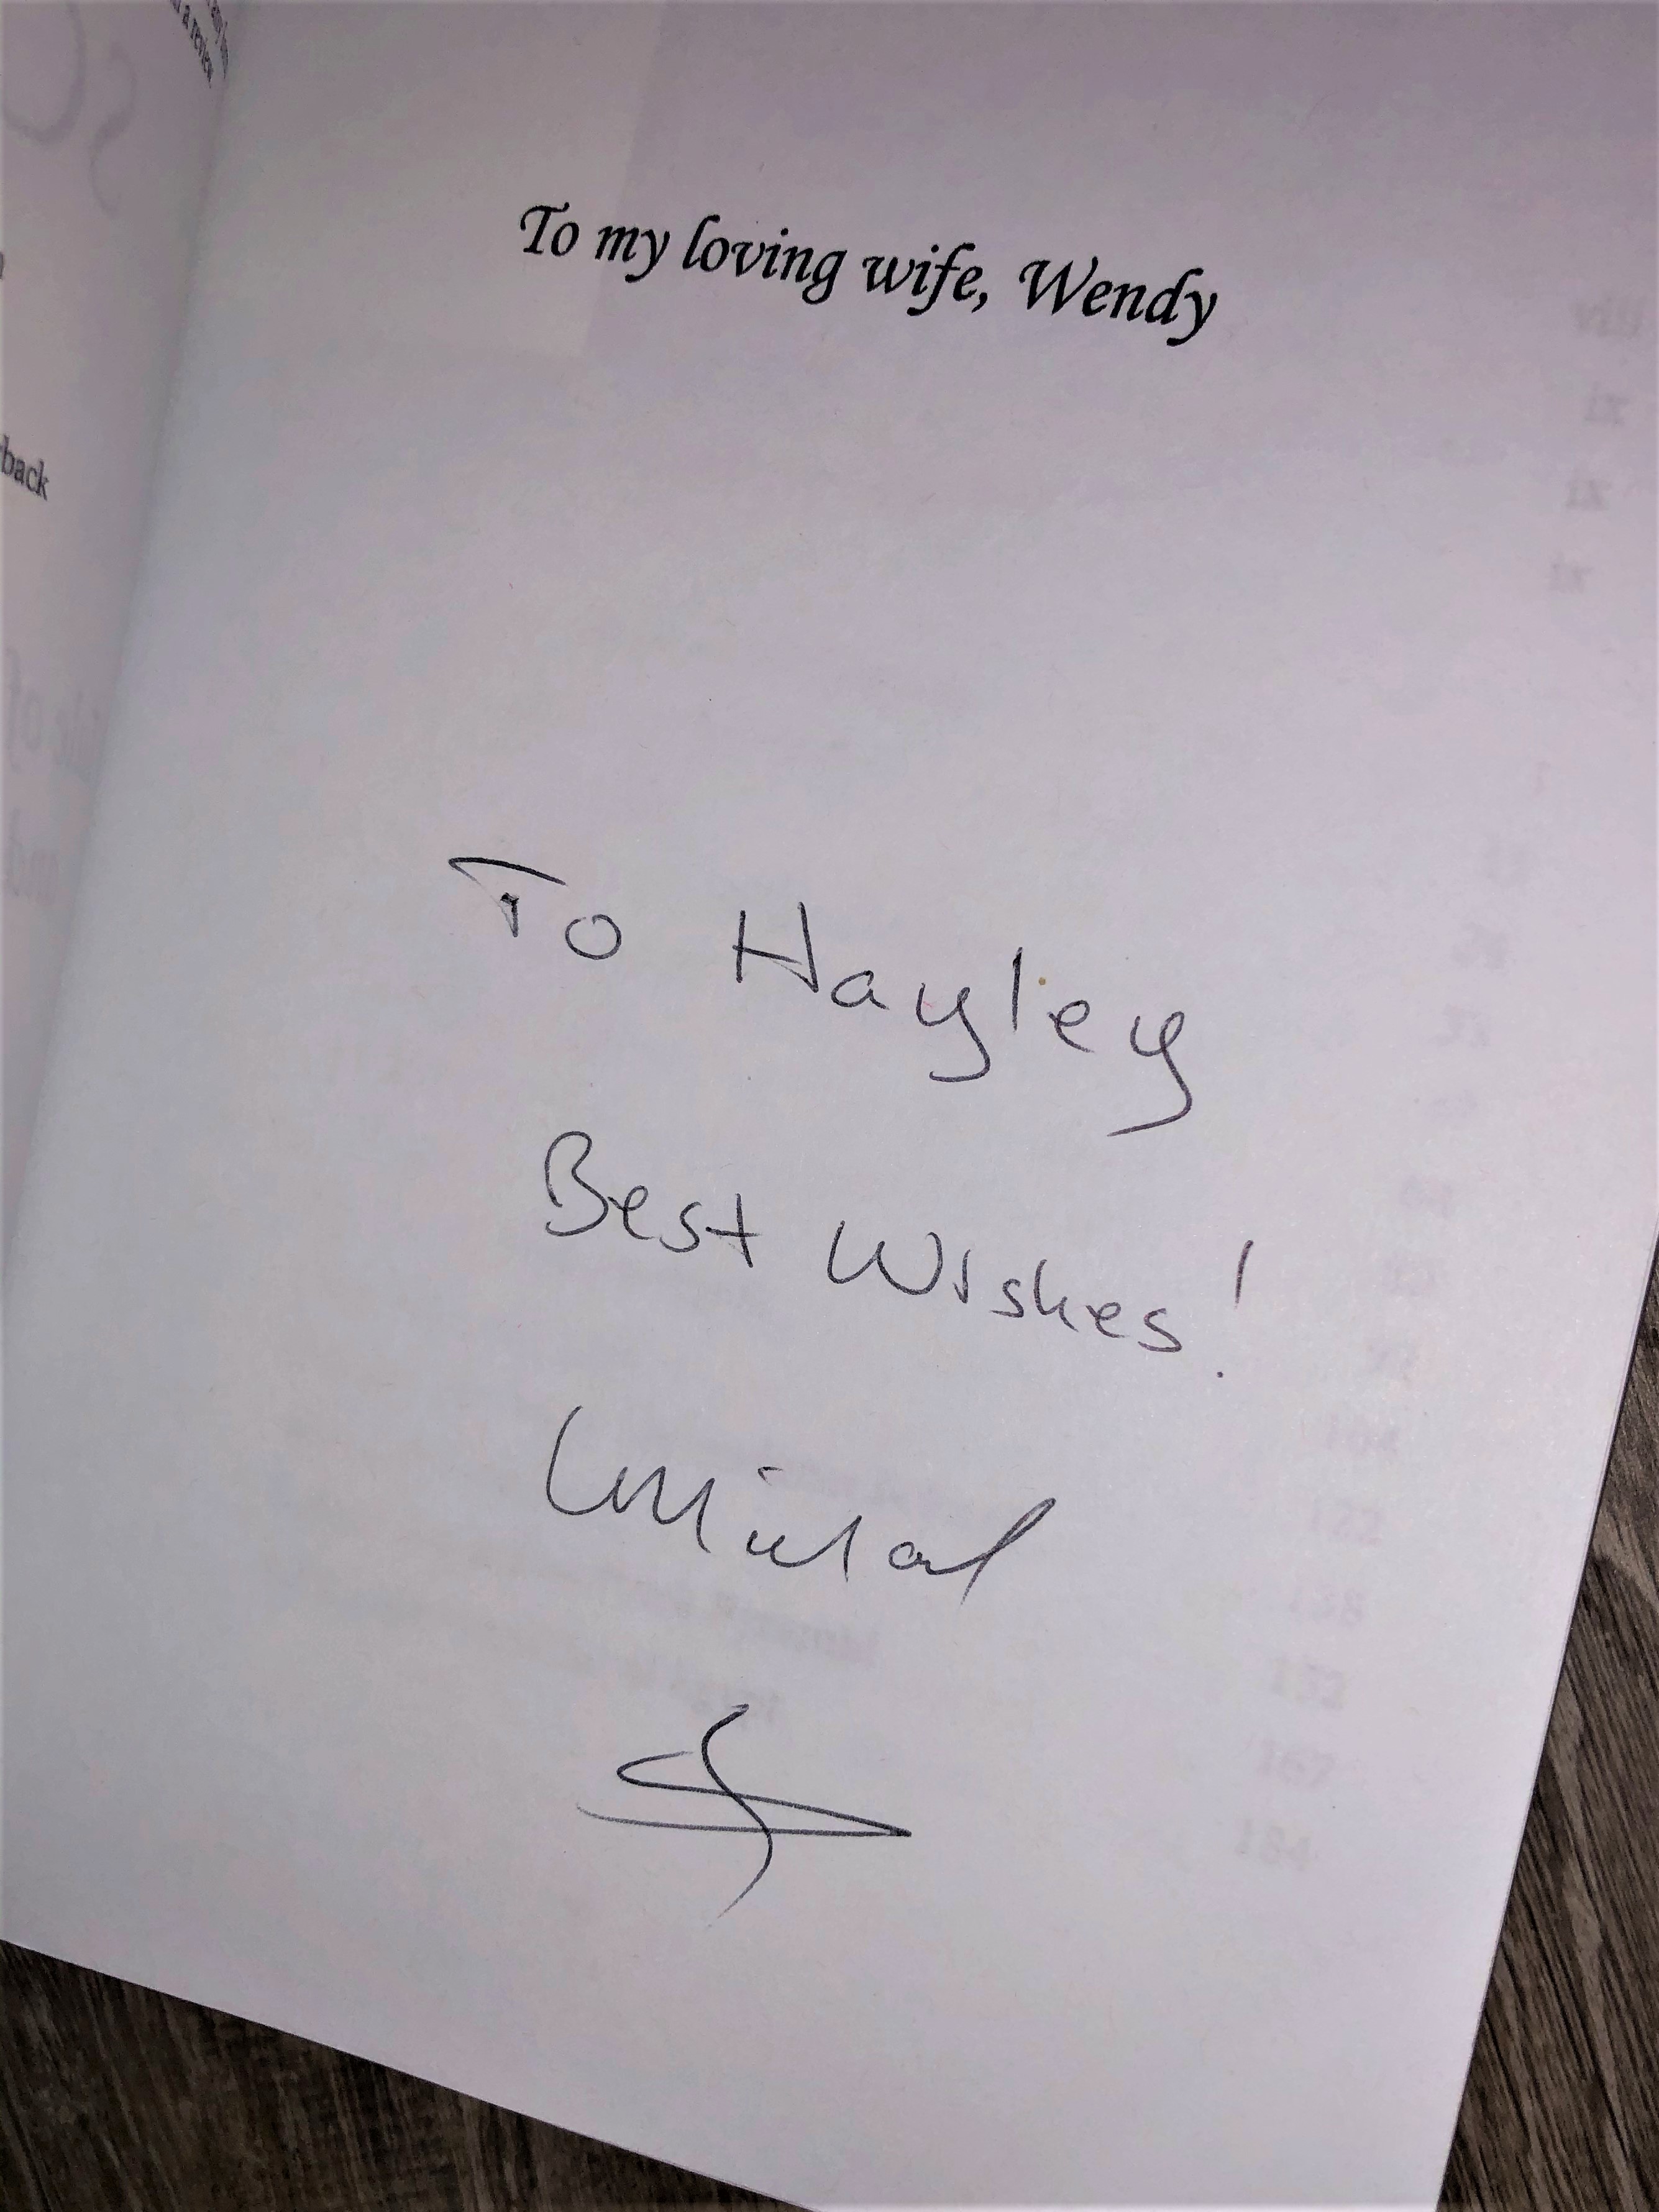 back
To my loving wife, Wendy
To Hayley
Best Wishes!